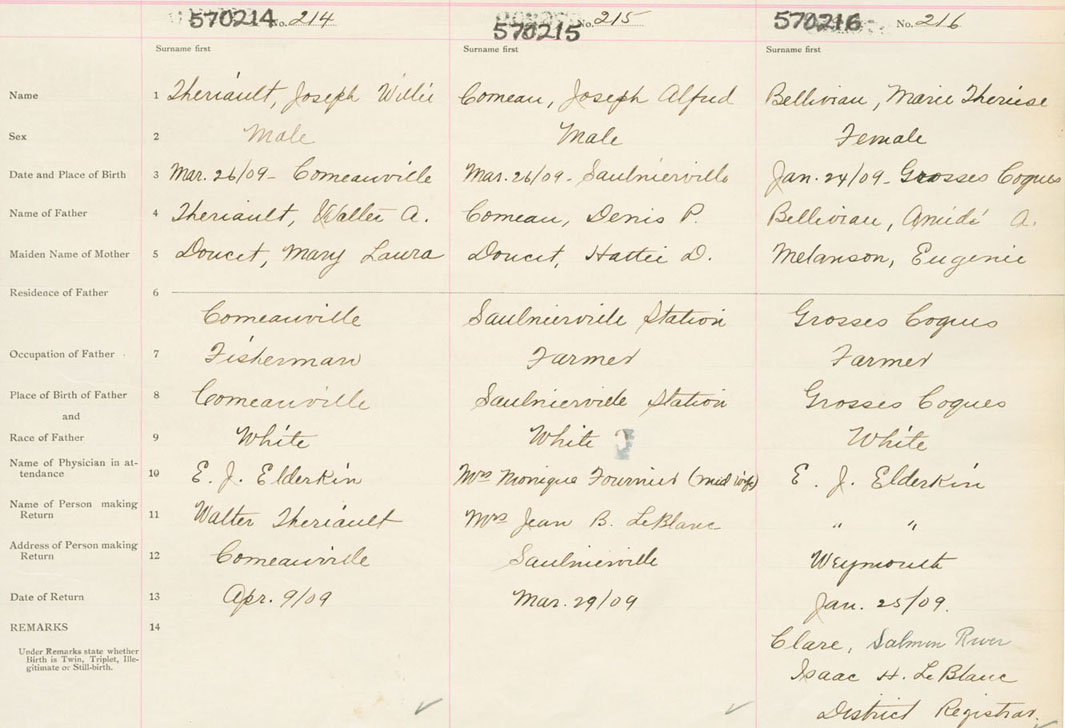 570214 No. 214 570215 No. 215 570216 No. 216
Surname first Surname first Surname first
Name 1 Theriault, Joseph Willie Comeau, Joseph Alfred Bellivian, Marie Thereise
Sex 2 Male Male Female
Date and Place of Birth 3 Mar. 26/09 - Comeauville Mar. 26/09 - Saulnierville Jan. 24/09 - Grosses Coques
Name of Father 4 Theriault, Walter A. Comeau, Denis P. Bellivian, Amidé A.
Maiden Name of Mother 5 Doucet, Mary Laura Doucet, Hattie D. Melanson, Eugenie
Residence of Father 6
Comeauville Saulnierville Station Grosses Coques
Occupation of Father 7 Fisherman Farmer Farmer
Place of Birth of Father 8 Comeauville Saulnierville Station Grosses Coques
and
Race of Father 9 White White White
Name of Physician in at-
tendance 10 E. J. Elderkin Mrs Monique Fournier (midwife) E. J. Elderkin
Name of Person making
Return 11 Walter Theriault Mrs Jean B. LeBlanc " "
Address of Person making
Return 12 Comeauville Saulnierville Weymouth
Date of Return 13 Apr. 9/09 Mar. 29/09 Jan. 25/09.
REMARKS 14
Clare, Salmon River
Under Remarks state whether
Birth is Twin, Triplet, Ille-
gitimate or Still-birth.
Isaac H. LeBlanc
District Registrar.